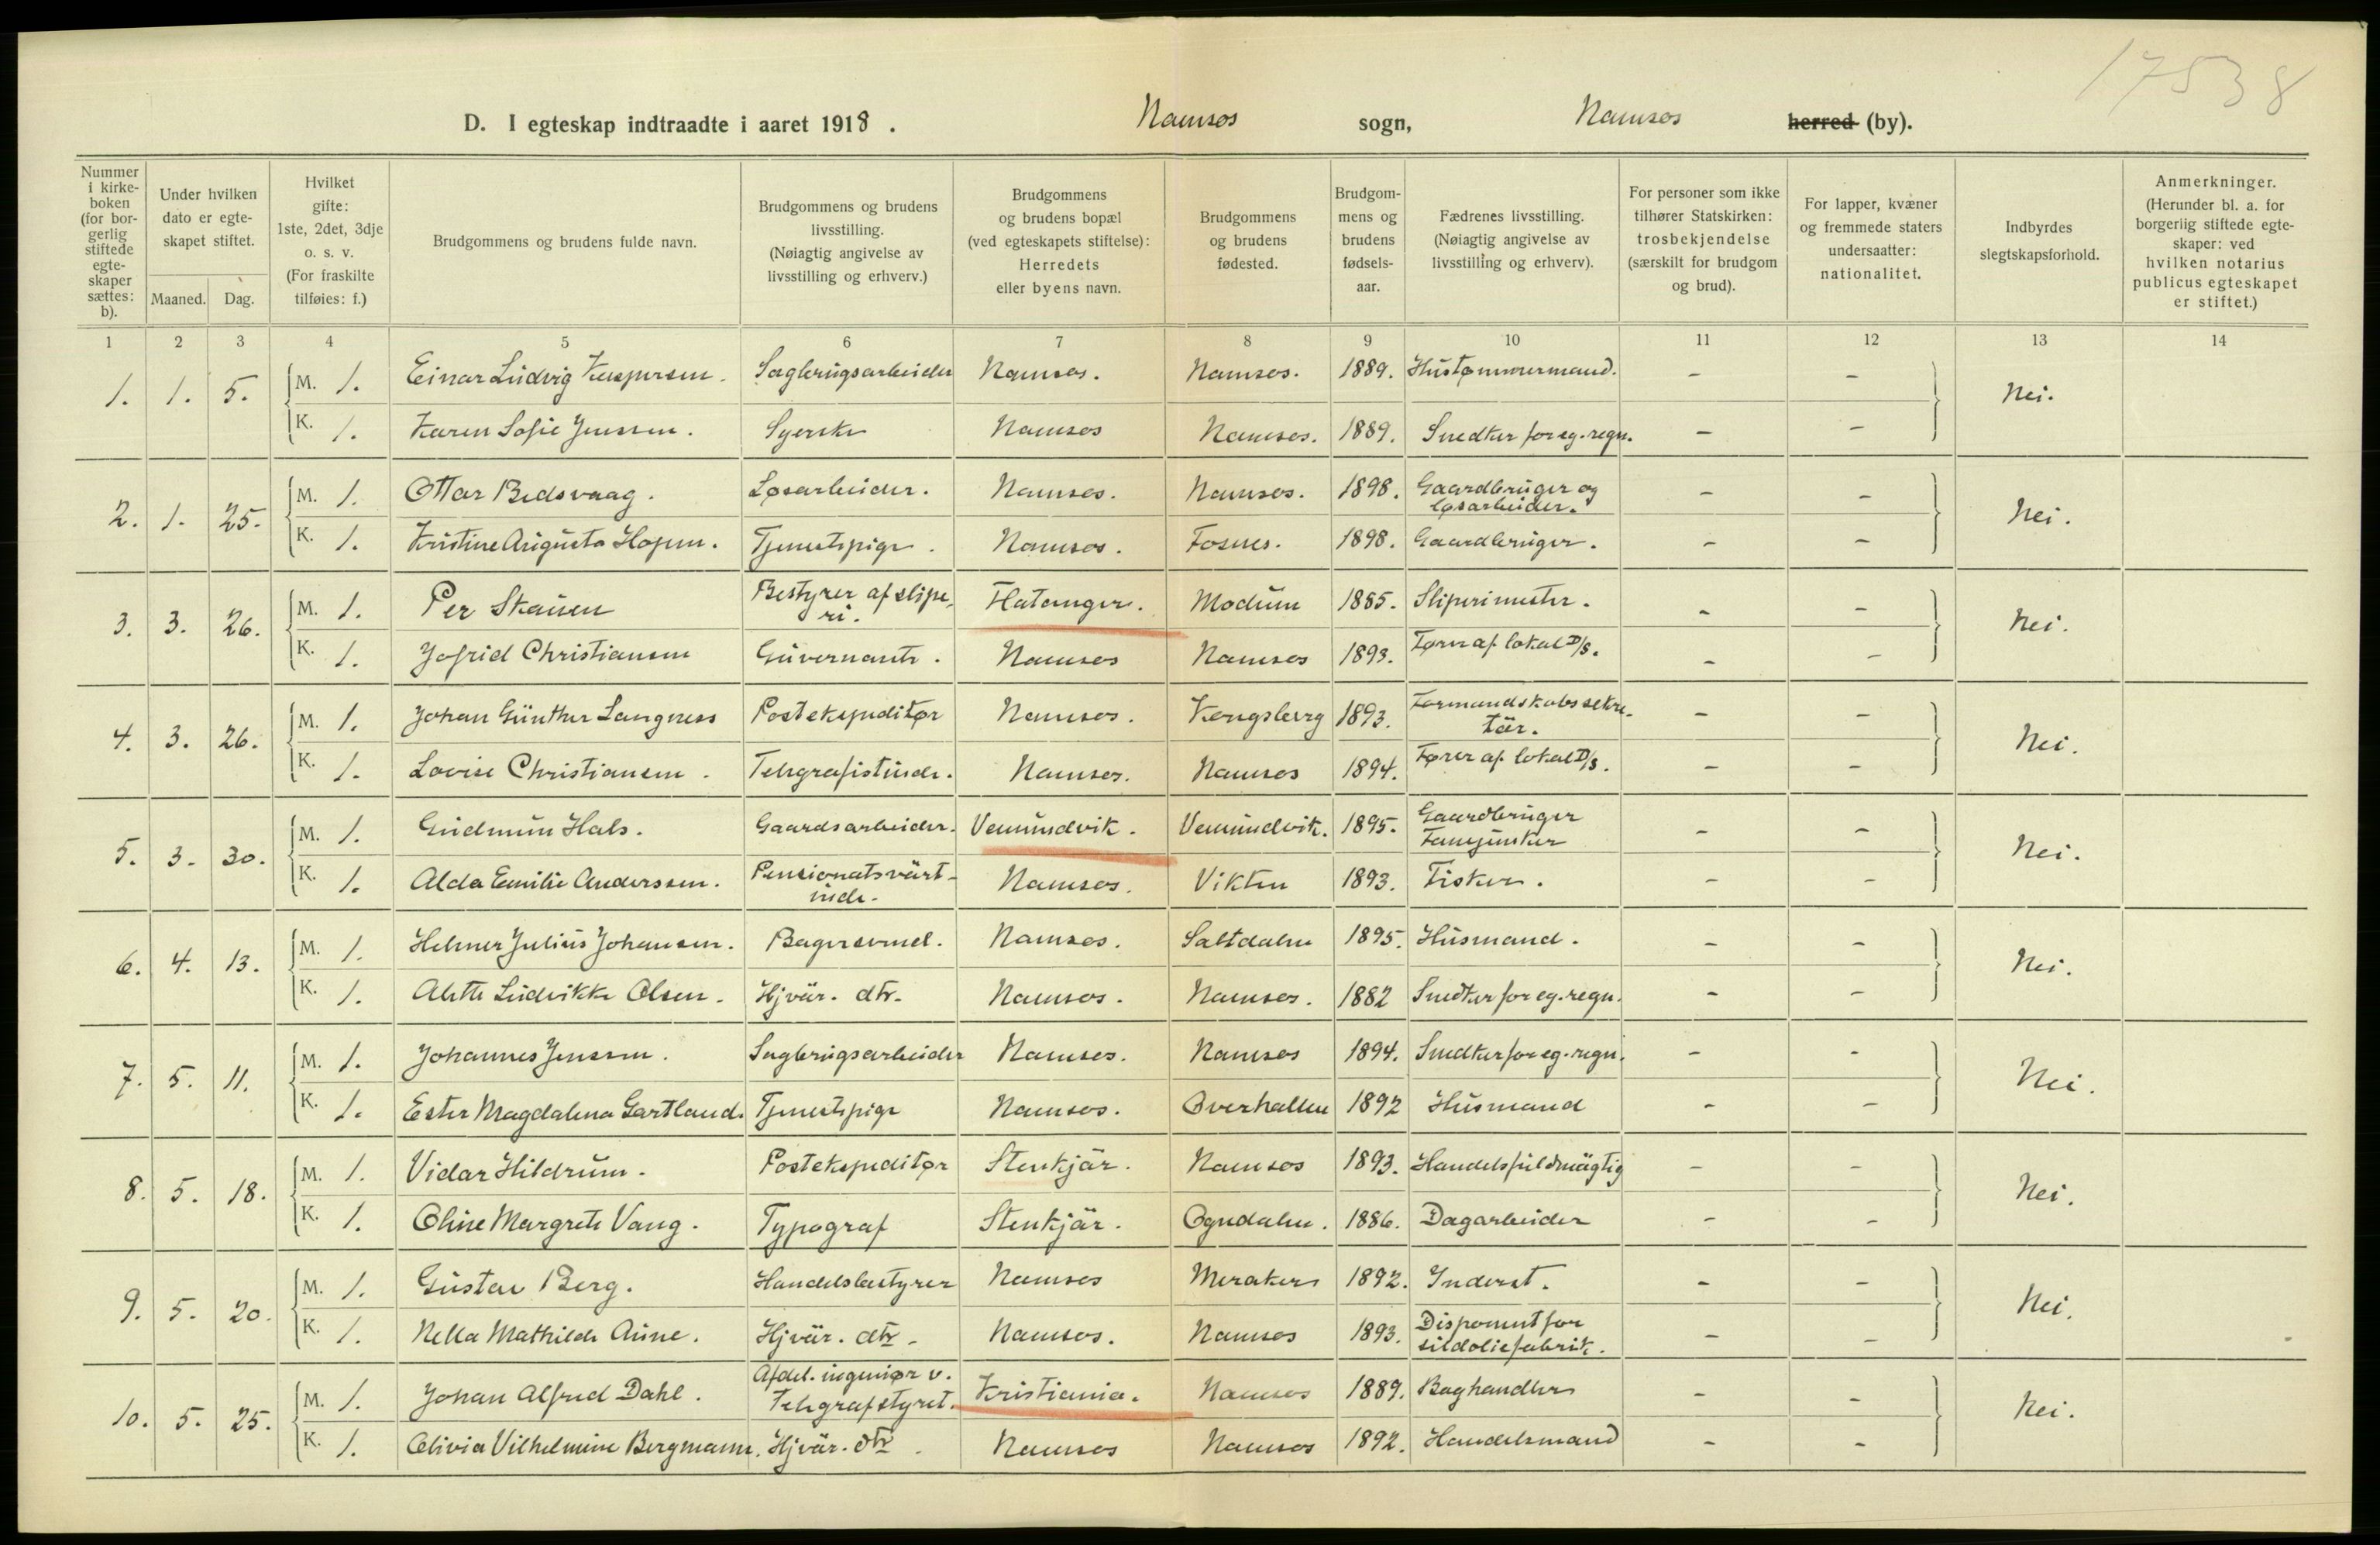 17538
D. I egteskap indtraadte i aaret 1918. Namsos sogn, Namsos herred (by).
Nummer i kirkeboken (for borgerlig stiftede egteskaper sættes: b).
Under hvilken dato er egteskapet stiftet.
Maaned. Dag.
Hvilket gifte: 1ste, 2det, 3dje o. s. v. (For fraskilte tilføies: f.)
Brudgommens og brudens fulde navn.
Brudgommens og brudens livsstilling. (Nøiagtig angivelse av livsstilling og erhverv.)
Brudgommens og brudens bopæl (ved egteskapets stiftelse): Herredets eller byens navn.
Brudgommens og brudens fødested.
Brudgommens og brudens fødselsaar.
Fædrenes livsstilling. (Nøiagtig angivelse av livsstilling og erhverv).
For personer som ikke tilhører Statskirken: trosbekjendelse (særskilt for brudgom og brud).
For lapper, kvæner og fremmede staters undersaatter: nationalitet.
Indbyrdes slegtskapsforhold.
Anmerkninger. (Herunder bl. a. for borgerlig stiftede egteskaper: ved hvilken notarius publicus egteskapet er stiftet.)
1 2 3 4 5 6 7 8 9 10 11 12 13 14
1. 1. 5. M. 1. Einar Ludvig Kaspersen. Sagbrugsarbeider Namsos. Namsos. 1889. Hustømmermand. - - Nei.
K. 1. Karen Sofie Jenssen. Syerske Namsos Namsos. 1889. Smedker for eg. regn. - -
2. 1. 25. M. 1. Ottar Bedsvaag. Løsarbeider. Namsos. Namsos. 1898. Gaardbruger og løsarbeider. - - Nei.
K. 1. Kristine Augusta Hopen. Tjenestepige. Namsos. Fosnes. 1898. Gaardbruger. - -
3. 3. 26. M. 1. Per Skauen Bestyrer af sliperi. Flatanger. Modum 1885. Sliperimester. - - Nei.
K. 1. Jofrid Christiansen Guvernante. Namsos Namsos 1893. Fører af lokal D/S. - -
4. 3. 26. M. 1. Johan Günther Langness Postekspeditør Namsos. Kongsberg 1893. Formandskabssekretær. - - Nei.
K. 1. Lovise Christiansen. Telegrafistinde. Namsos. Namsos 1894. Fører af lokal D/S. - -
5. 3. 30. M. 1. Gudmun Hals. Gaardsarbeider. Vemundvik. Vemundvik. 1895. Gaardbruger Fanejunker - - Nei.
K. 1. Alda Emilie Anderssen. Pensionatsvärtinde. Namsos. Vikten 1893. Fisker. - -
6. 4. 13. M. 1. Helmer Julius Johansen. Bagersvend. Namsos. Saltdalen 1895. Husmand. - - Nei.
K. 1. Alette Ludvikke Olsen. Hjvär. dtr. Namsos. Namsos. 1882 Smedker for eg. regn. - -
7. 5. 11. M. 1. Johannes Jenssen. Sagbrugsarbeider Namsos. Namsos 1894. Smedker for eg. regn. - - Nei.
K. 1. Ester Magdalena Gartland. Tjenestepige Namsos. Overhallen 1892 Husmand - -
8. 5. 18. M. 1. Vidar Hildrum. Postekspeditør Stenkjär. Namsos 1893. Handelsfuldmägtig - - Nei.
K. 1. Oline Margrete Vang. Typograf Stenkjär. Ogndalen. 1886. Dagarbeider - -
9. 5. 20. M. 1. Gustav Berg. Handelsbestyrer Namsos Meraker 1892. Inderst. - - Nei.
K. 1. Nella Mathilde Aune. Hjvär. dtr. Namsos. Namsos 1893. Disponent for sildoliefabrik. - -
10. 5. 25. M. 1. Johan Alfred Dahl. Afdel. ingeniør v. Telegrafstyret. Kristiania. Namsos 1889. Baghandler - - Nei.
K. 1. Olivia Vilhelmine Bergmann. Hjvär. dtr. Namsos Namsos 1892. Handelsmand - -